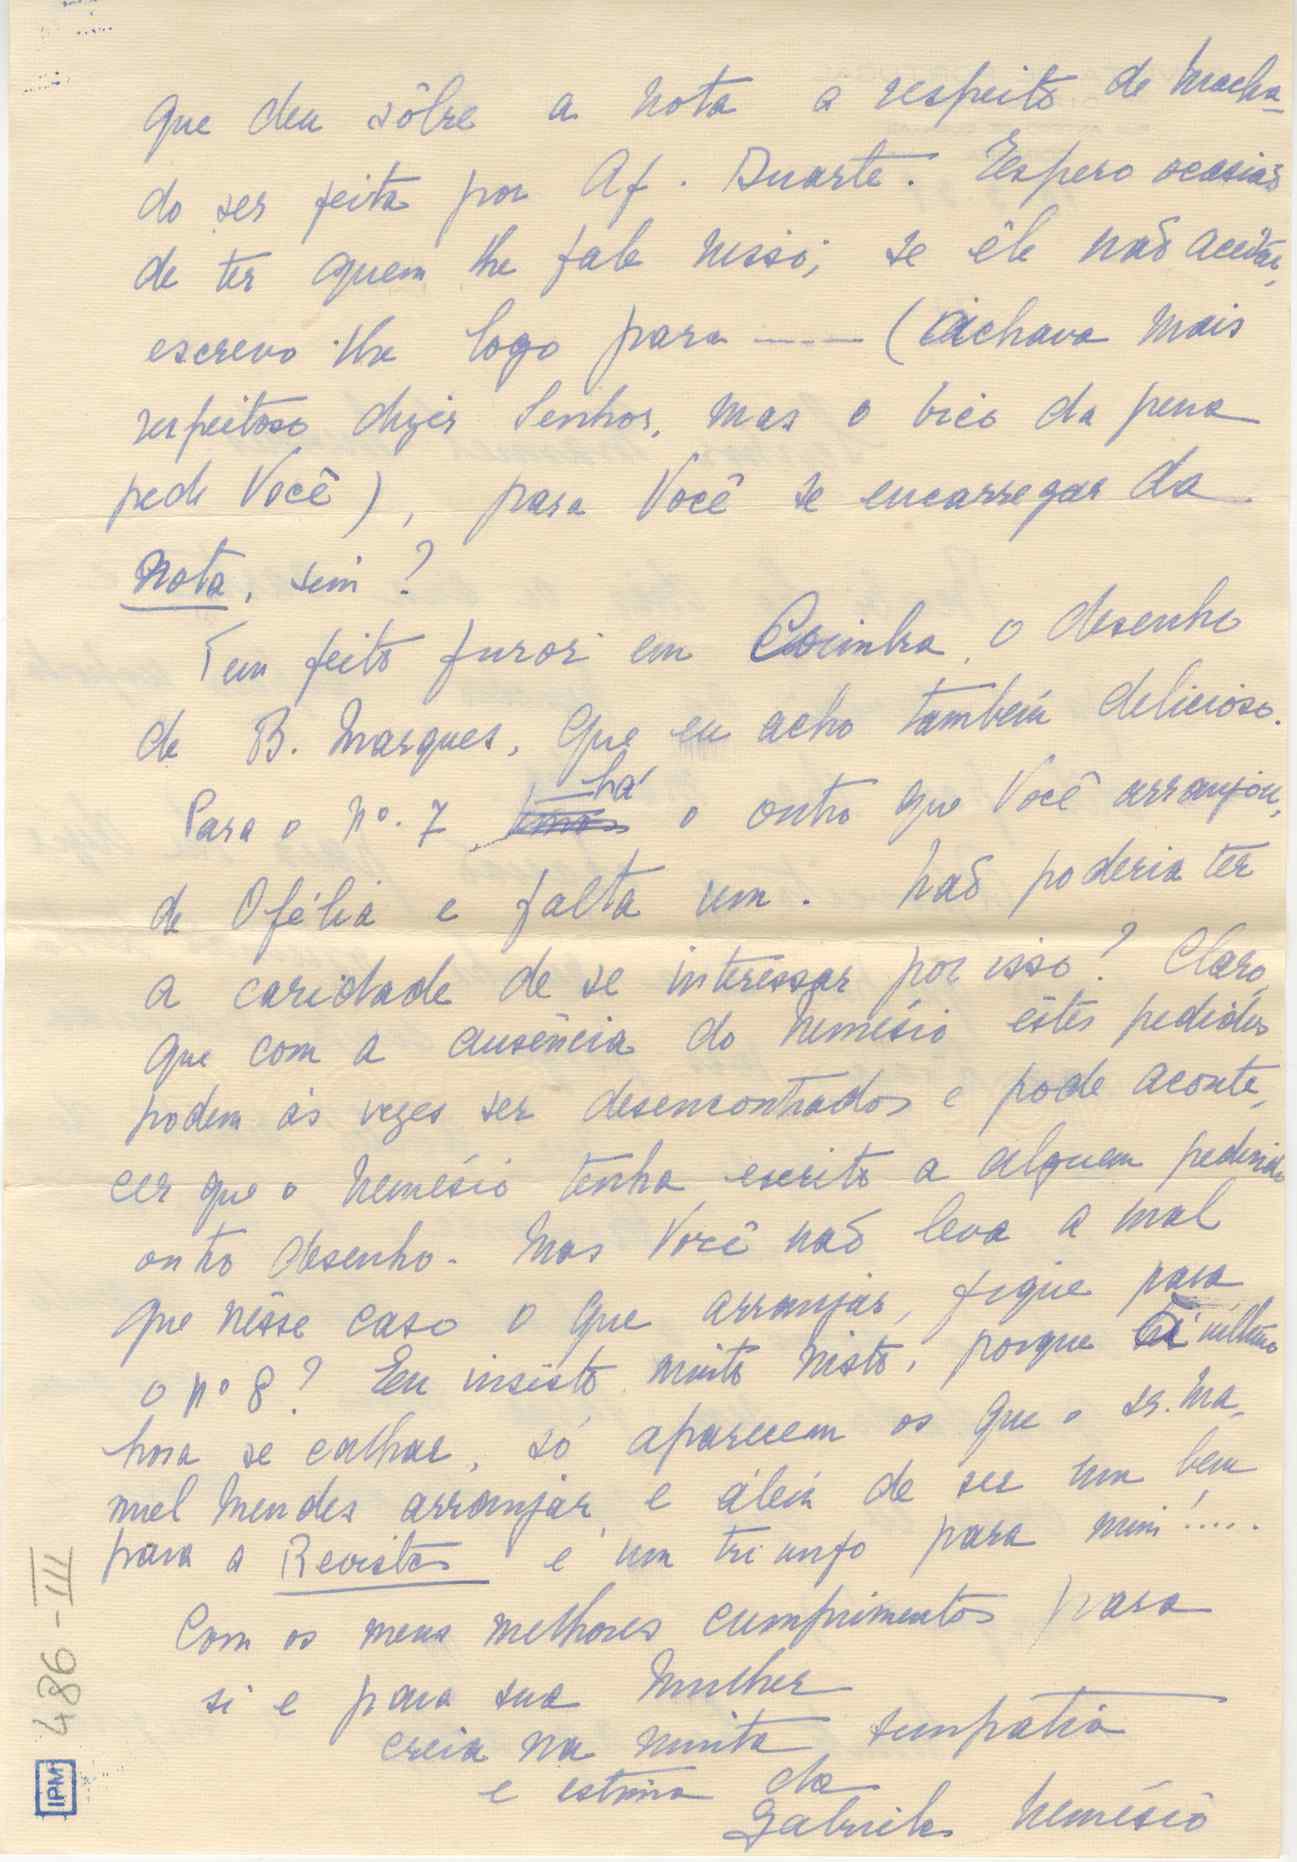 que deu sôbre a nota a respeito de Macha-
do ser feita por Af. Duarte. Espero ocasião
de ter quem lhe fale nisso; se êle não aceitar,
escrevo-lhe logo para ---- (achava mais
respeitoso dizer Senhor, mas o bico da pena
pede Você), para Você se encarregar da
Nota, sim?
Tem feito furor em Coimbra, o desenho
de B. Marques, que eu acho também delicioso.
Para o nº. 7 há o outro que Você arranjou,
de Ofélia e falta um. Não poderia ter
a caridade de se interessar por isso? Claro,
que com a ausência do Nemésio êstes pedidos
podem às vezes ser desencontrados e pode aconte-
cer que o Nemésio tenha escrito a alguem pedindo
outro desenho. Mas Você não leva a mal
que nêsse caso o que arranjar, fique para
o nº 8? Eu insisto muito nisto, porque à última
hora se calhar, só aparecem os que o sr. Ma-
nuel Mendes arranjar, e álém de ser um bem
para a Revista é um triunfo para mim!....
Com os meus melhores cumprimentos para
si e para sua Mulher
creia na muita simpatia
e estima da
Gabriela Nemésio
486-III
IPM